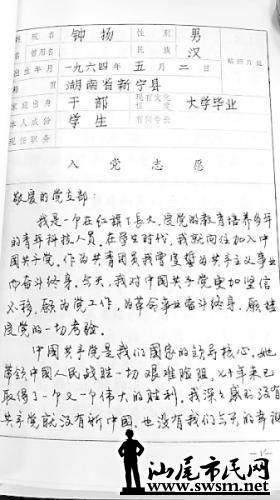 姓名 钟扬 性别 男
曾用名 民族 汉
出生年月 一九六四年五月二日 贴照片处
籍贯 湖南省新宁县
家庭出身 干部 现有文化程度 大学毕业
本人成份 学生 有何专长
现任职务
入党志愿
敬爱的党支部：
我是一个在红旗下长大，受党的教育培养多年
的青年科技人员，在学生时代，我就向往加入中
国共产党，作为共青团员我曾宣誓为共产主义事业
而奋斗终身。今天，我对中国共产党更加坚信
不移，愿为党工作，为革命事业奋斗终身，愿接
受党的一切考验。
中国共产党是我们国家的领导核心，她
带领中国人民战胜一切艰难险阻，六十年来已
取得了一个又一个伟大的胜利，我深深感到没有
共产党就没有新中国，也没有我们今天的幸福
-1-
汕尾市民网
www.swsm.net